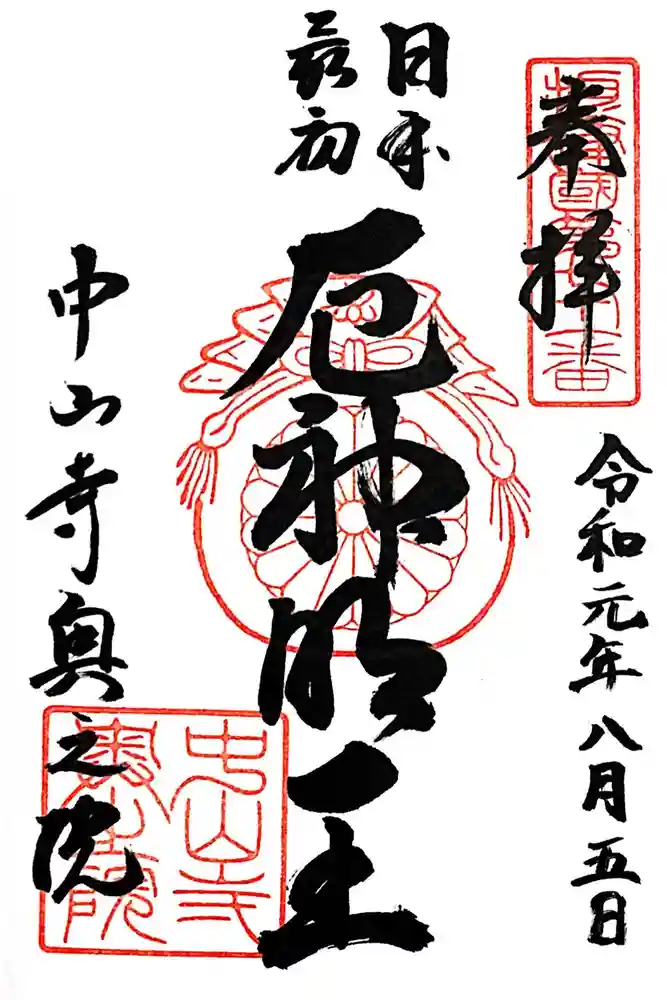 奉拝
令和元年八月五日
日本
最初
厄神明王
中山寺奥之院
中山寺
奥之院